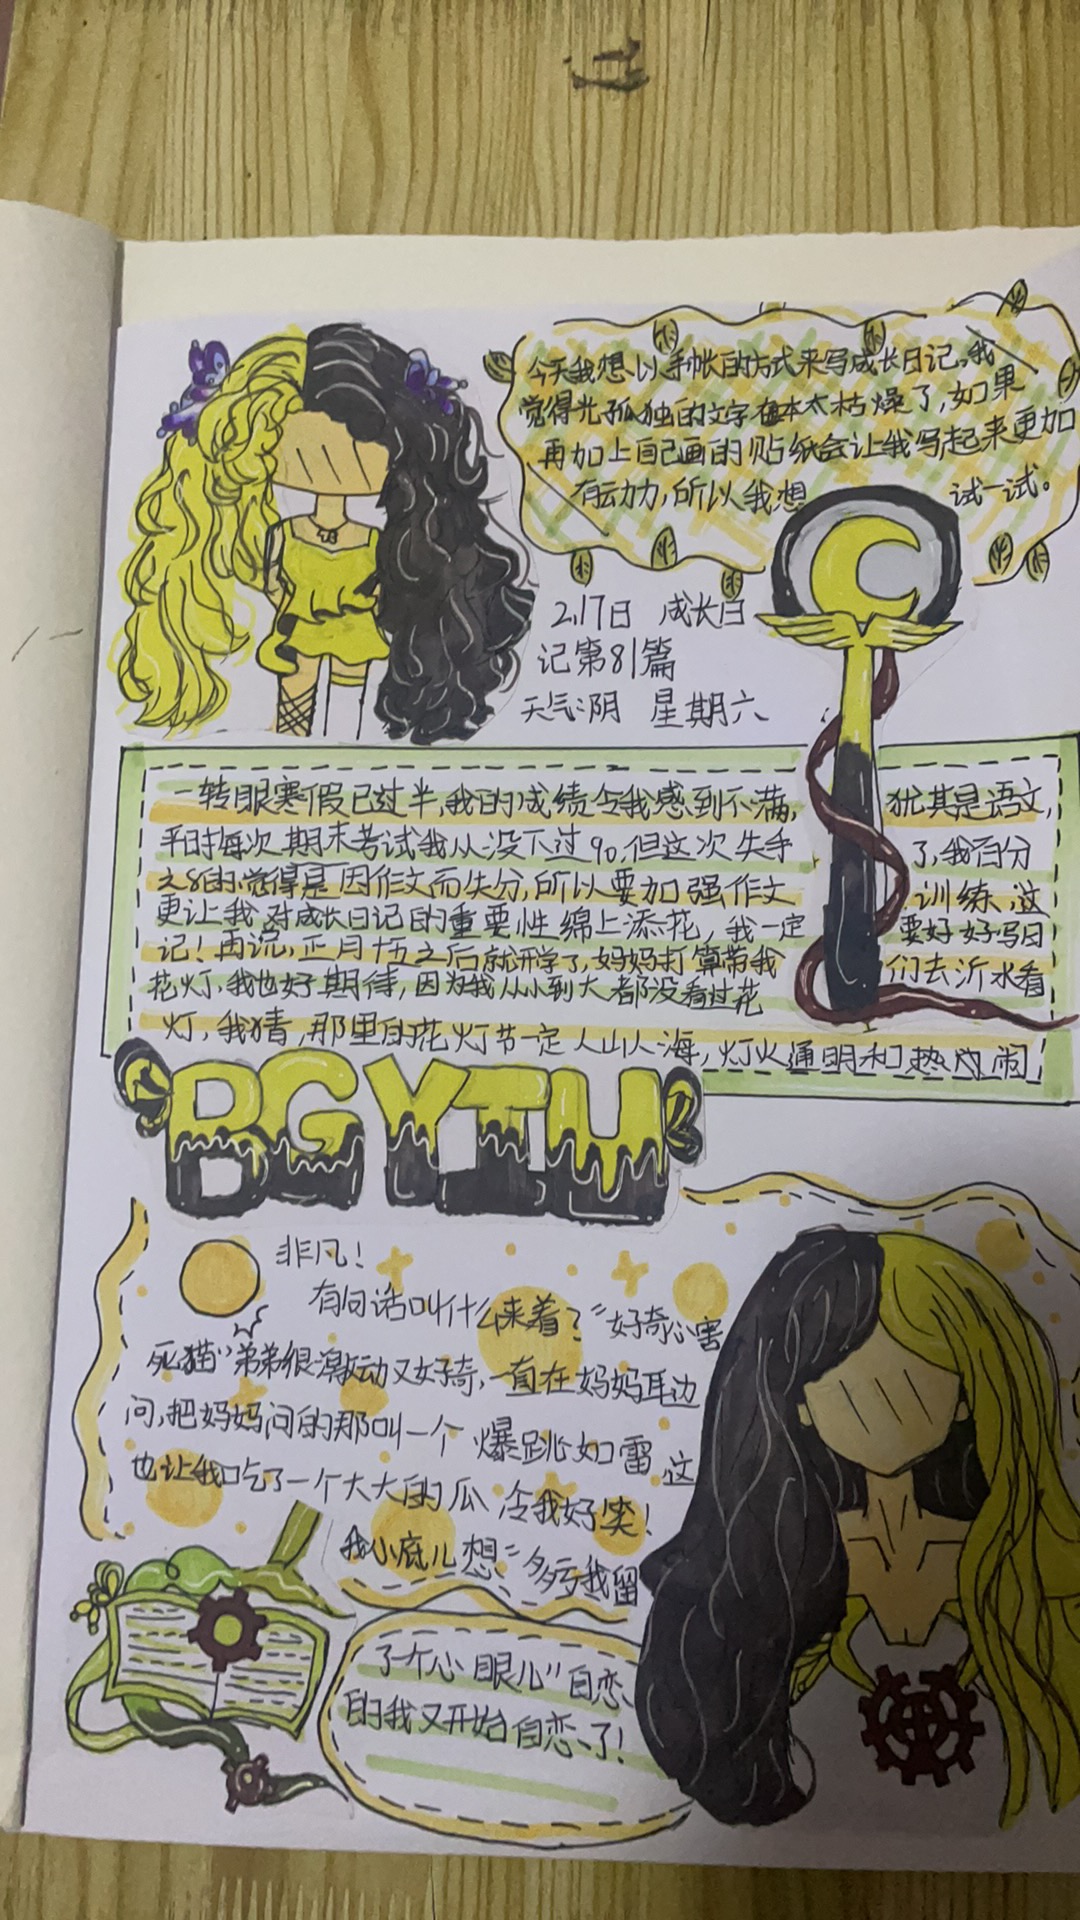 今天我想以手帐的方式来写成长日记。我
觉得光孤独的文字在本太枯燥了,如果
再加上自己画的贴纸会让我写起来更加
有动力,所以我想试一试。
2.17日 成长日
记第81篇
天气:阴 星期六
一转眼寒假已过半,我的成绩令我感到不满,犹其是语文,
平时每次期末考试我从没下过90,但这次失手了,我百分
之80的觉得是因作文而失分,所以要加强作文训练,这
更让我对成长日记的重要性绵上添花,我一定要好好写日
记!再说,正月十五之后就开学了,妈妈打算带我们去沂水看
花灯,我也好期待,因为我从小到大都没看过花
灯,我猜,那里的花灯节一定人山人海,灯火通明和热闹
BGYIU
非凡!
有句话叫什么来着?"好奇心害
死猫"弟弟很激动又好奇,一直在妈妈耳边
问,把妈妈问的那叫一个爆跳如雷,这
也让我吃了一个大大的瓜 令我好笑!
我小底儿想"多亏我留
了一个心眼儿"自恋
的我又开始自恋了!